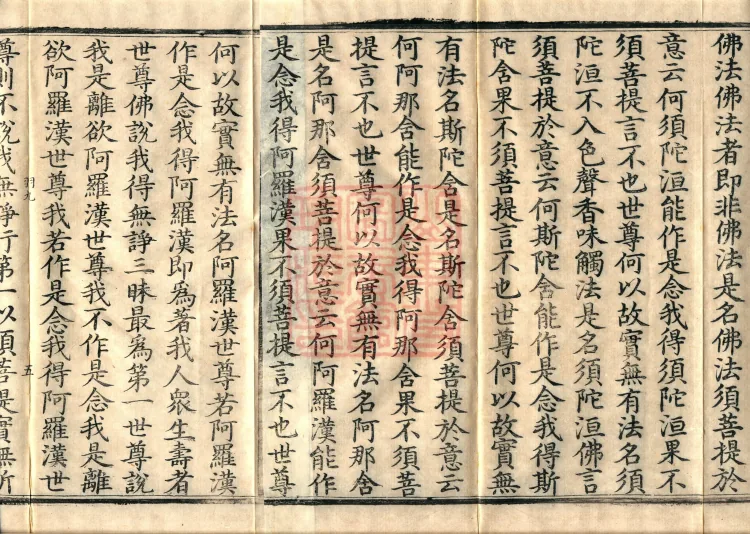 佛法佛法者即非佛法是名佛法須菩提於
意云何須陀洹能作是念我得須陀洹果不
須菩提言不也世尊何以故實無有法名須
陀洹不入色聲香味觸法是名須陀洹佛言
須菩提於意云何斯陀舍能作是念我得斯
陀舍果不須菩提言不也世尊何以故實無
有法名斯陀舍是名斯陀舍須菩提於意云
何阿那舍能作是念我得阿那舍果不須菩
提言不也世尊何以故實無有法名阿那舍
是名阿那舍須菩提於意云何阿羅漢能作
是念我得阿羅漢果不須菩提言不也世尊
何以故實無有法名阿羅漢世尊若阿羅漢
作是念我得阿羅漢即爲著我人衆生壽者
世尊佛說我得無諍三昧最爲第一世尊說
我是離欲阿羅漢世尊我不作是念我是離
欲阿羅漢世尊我若作是念我得阿羅漢世
羽九 五
尊則不說我無諍行第一以須菩提實無所